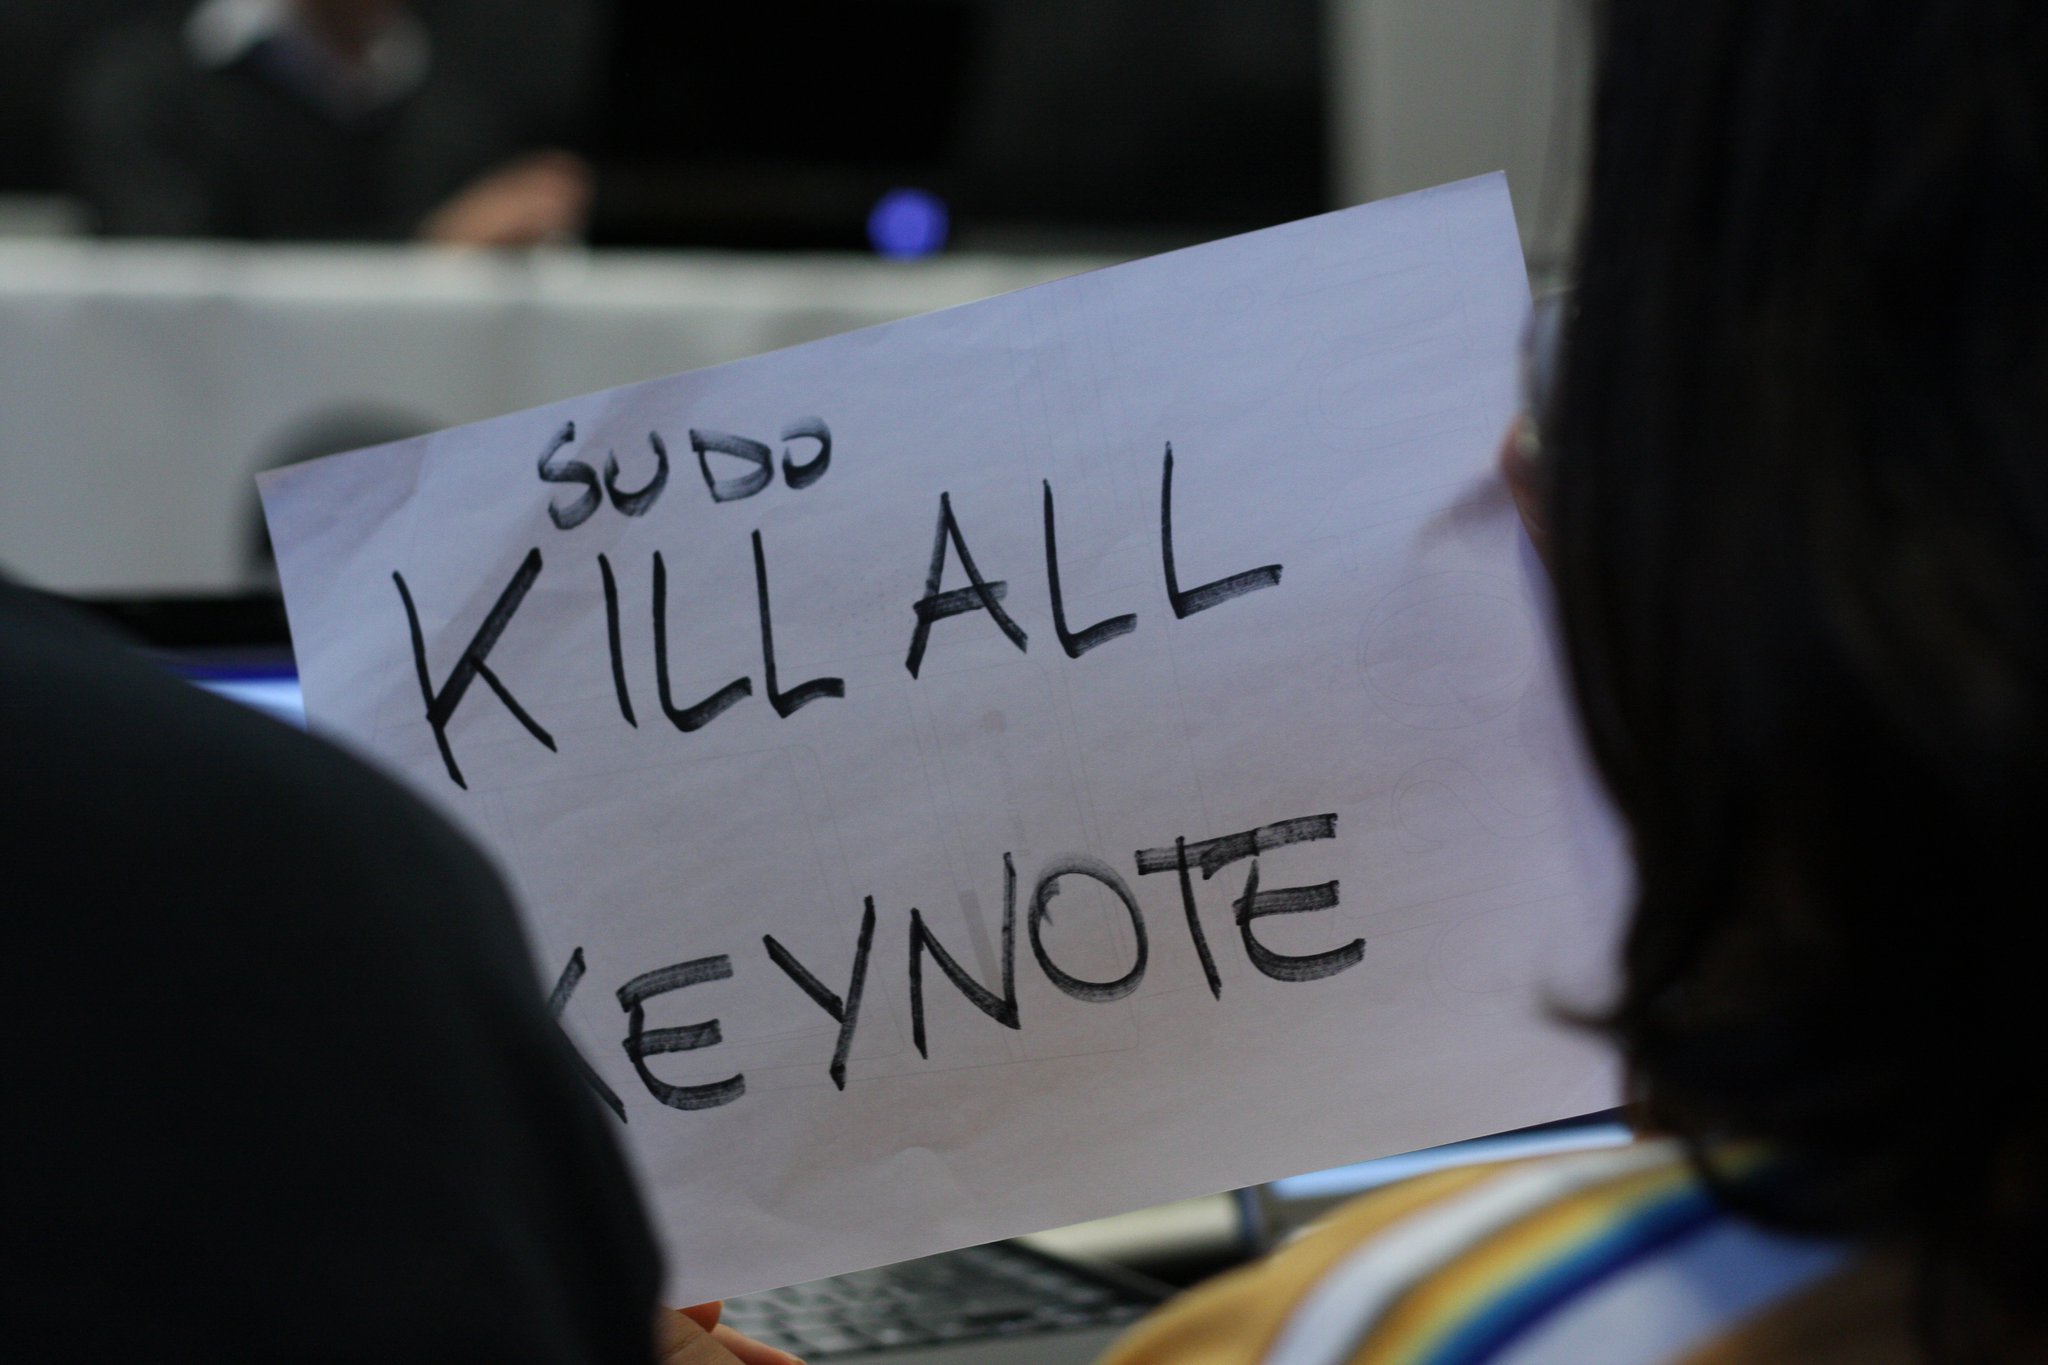 SUDO
KILL ALL
KEYNOTE